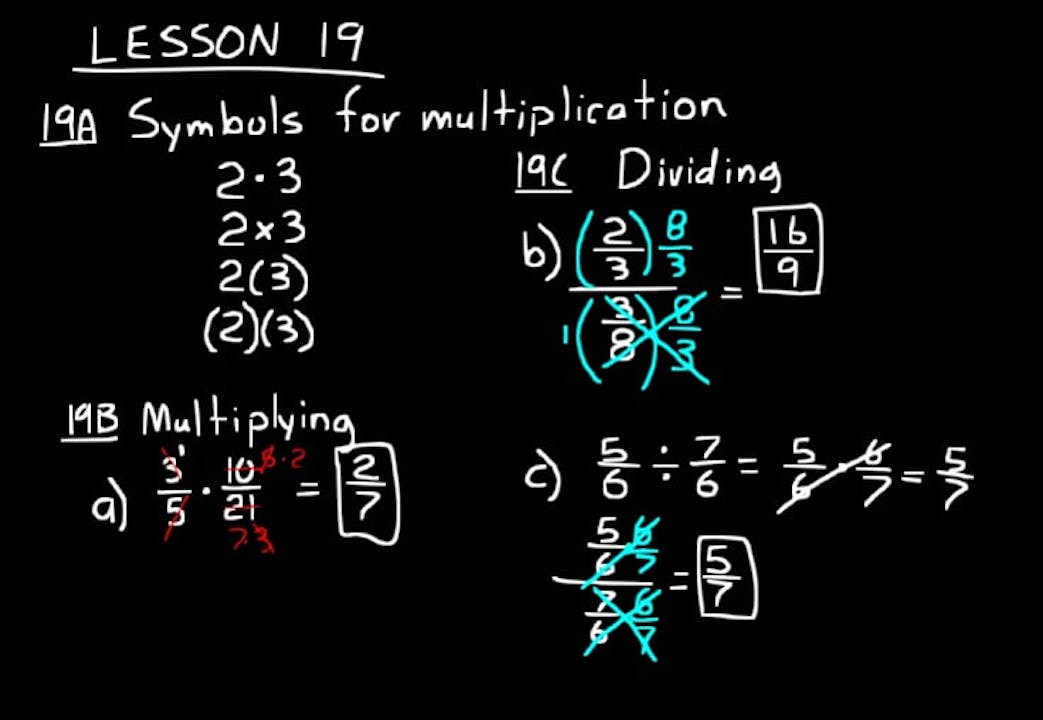 LESSON 19
19A Symbols for multiplication
2 · 3
2 × 3
2(3)
(2)(3)
19B Multiplying
a) 3/5 · 10/21 = 2/7
1
5 · 2
7 · 3
19C Dividing
b) (2/3) 8/3 = 16/9
1 (3/8) 8/3
c) 5/6 ÷ 7/6 = 5/6 · 6/7 = 5/7
5/6 · 6/7 = 5/7
7/6 · 6/7